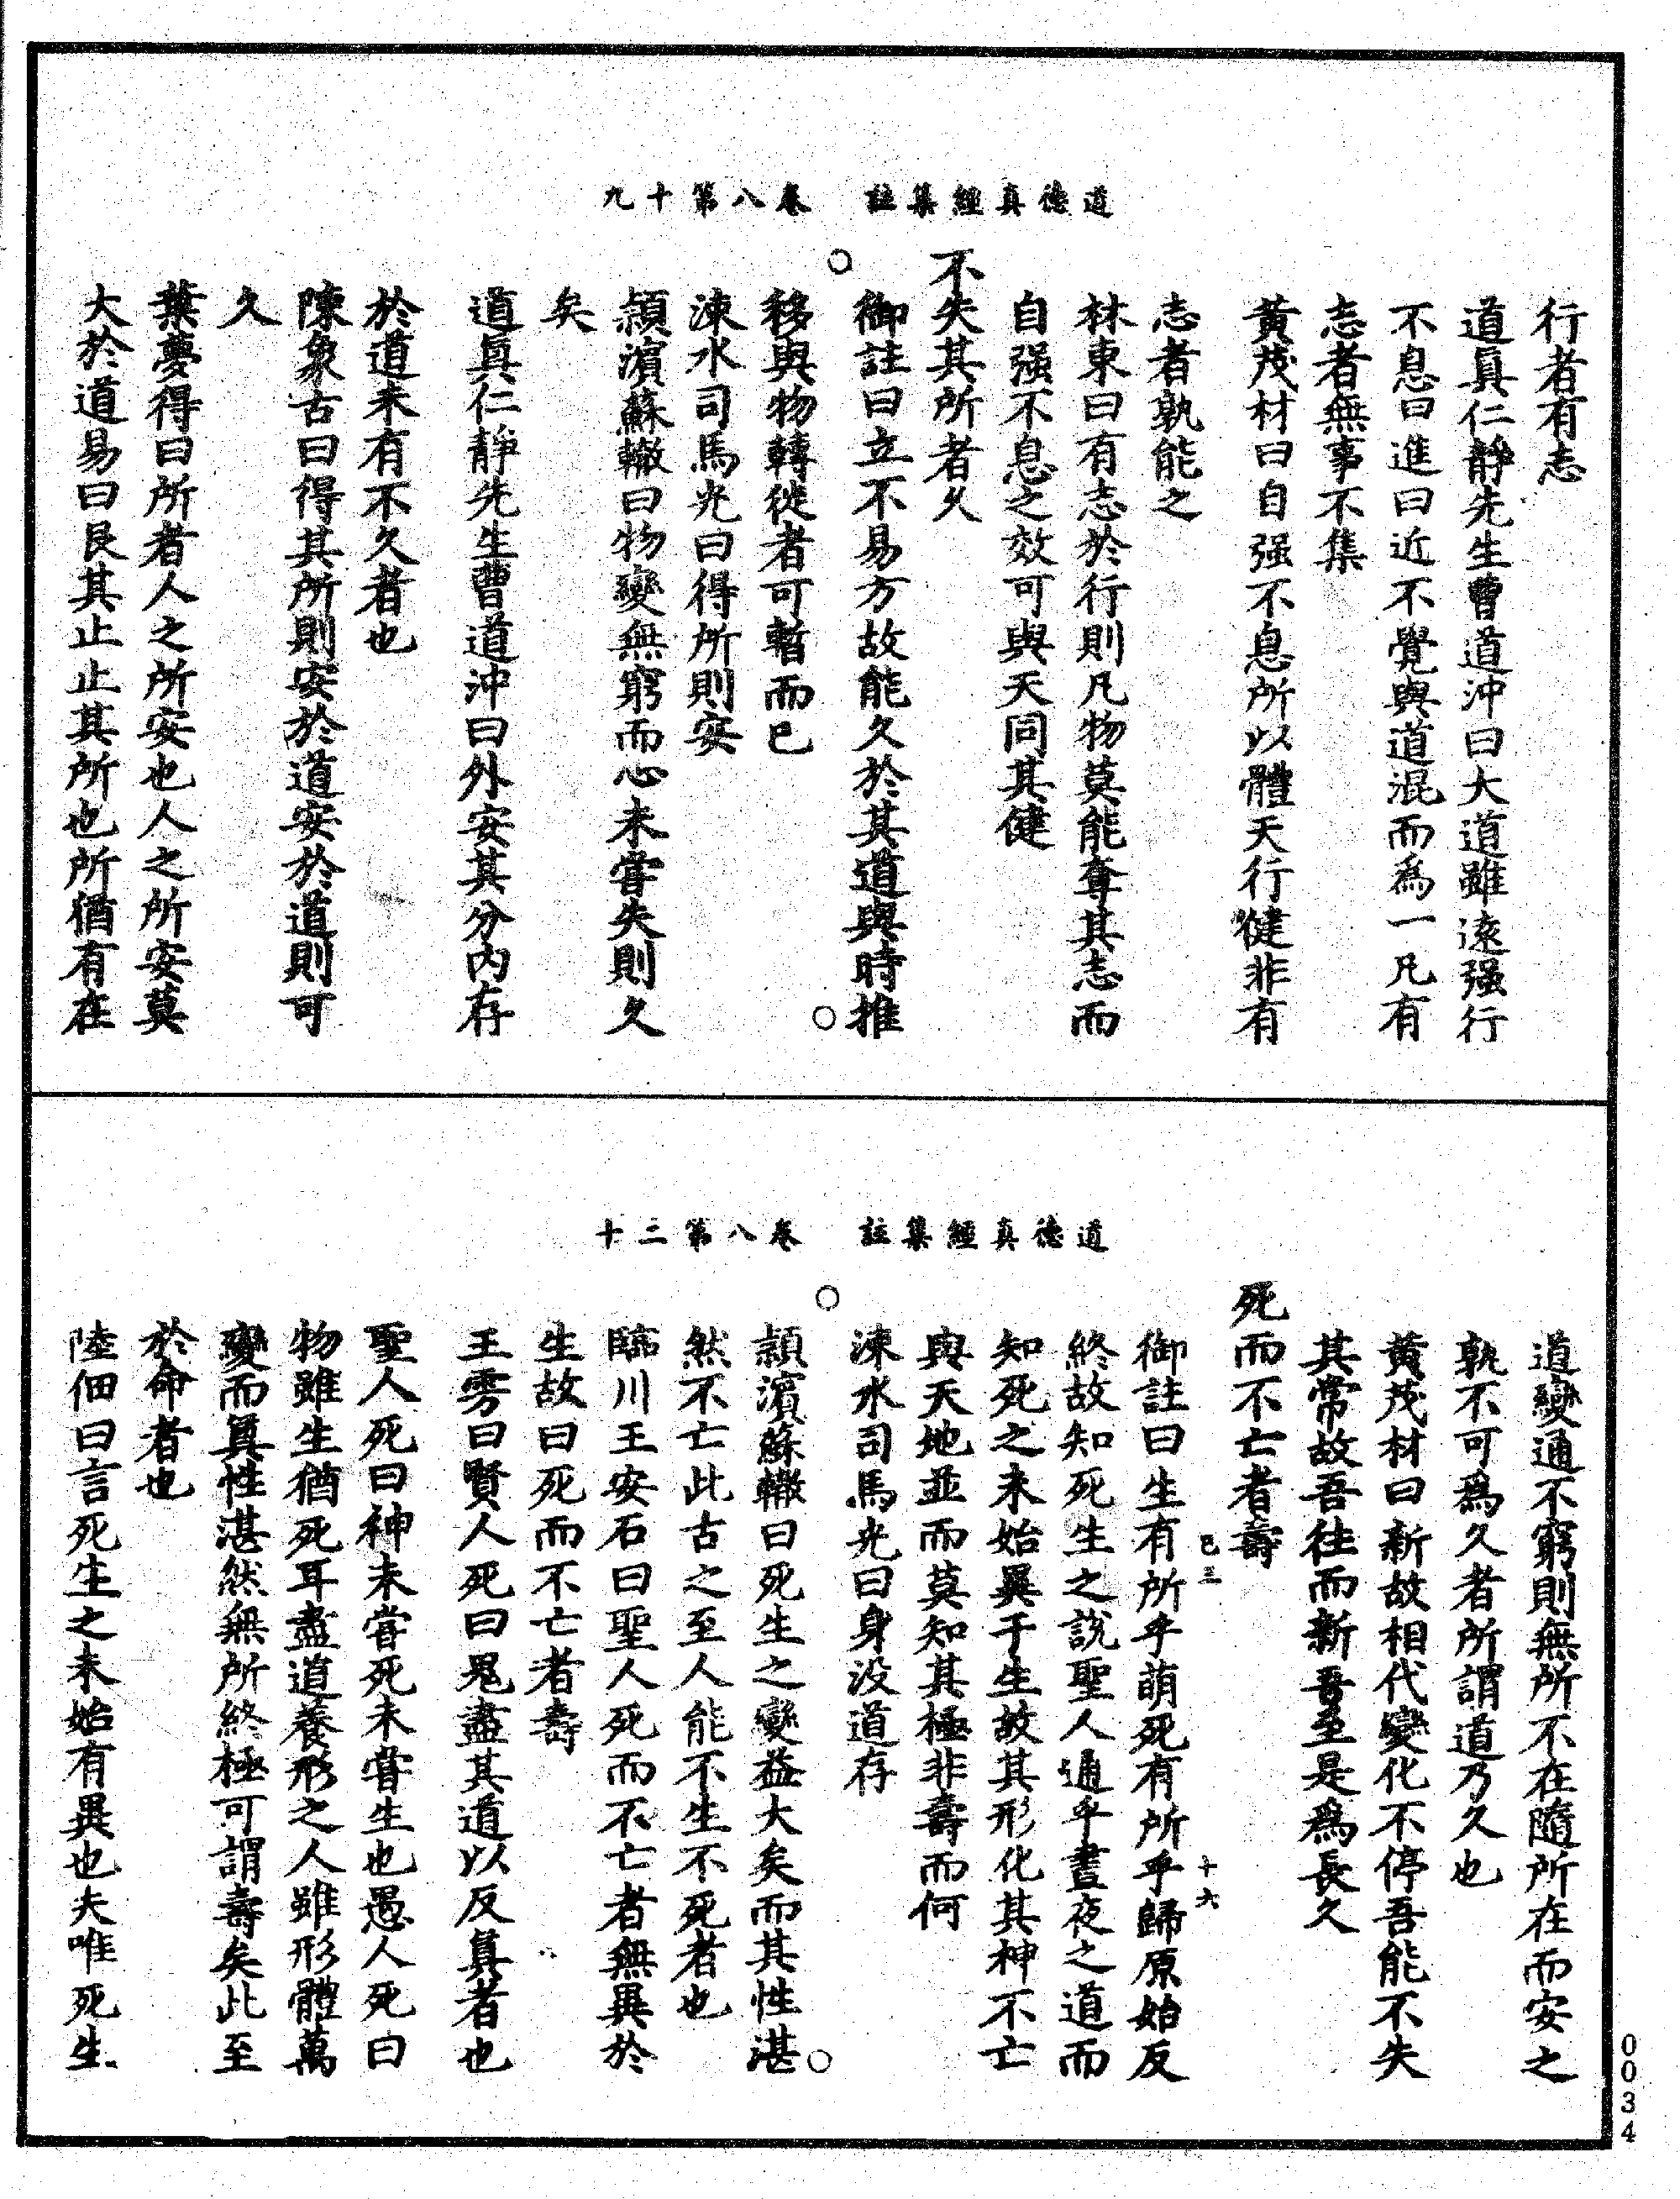 道德真經集註　卷八第十九
行者有志
道真仁靜先生曹道沖曰大道雖遠强行
不息日進日近不覺與道混而爲一凡有
志者無事不集
黃茂材曰自强不息所以體天行健非有
志者孰能之
林東曰有志於行則凡物莫能奪其志而
自强不息之效可與天同其健
不失其所者久
御註曰立不易方故能久於其道與時推
移與物轉徙者可暫而已
涑水司馬光曰得所則安
潁濱蘇轍曰物變無窮而心未嘗失則久
矣
道真仁靜先生曹道沖曰外安其分內存
於道未有不久者也
陳象古曰得其所則安於道安於道則可
久
葉夢得曰所者人之所安也人之所安莫
大於道易曰艮其止止其所也所猶有在
道德真經集註　卷八第二十
道變通不窮則無所不在隨所在而安之
孰不可爲久者所謂道乃久也
黃茂材曰新故相代變化不停吾能不失
其常故吾往而新吾至是爲長久
死而不亡者壽
已三　十六
御註曰生有所乎萌死有所乎歸原始反
終故知死生之說聖人通乎晝夜之道而
知死之未始異于生故其形化其神不亡
與天地並而莫知其極非壽而何
涑水司馬光曰身沒道存
潁濱蘇轍曰死生之變益大矣而其性湛
然不亡此古之至人能不生不死者也
臨川王安石曰聖人死而不亡者無異於
生故曰死而不亡者壽
王雱曰賢人死曰鬼盡其道以反真者也
聖人死曰神未嘗死未嘗生也愚人死曰
物雖生猶死耳盡道養形之人雖形體萬
變而真性湛然無所終極可謂壽矣此至
於命者也
陸佃曰言死生之未始有異也夫唯死生
0034